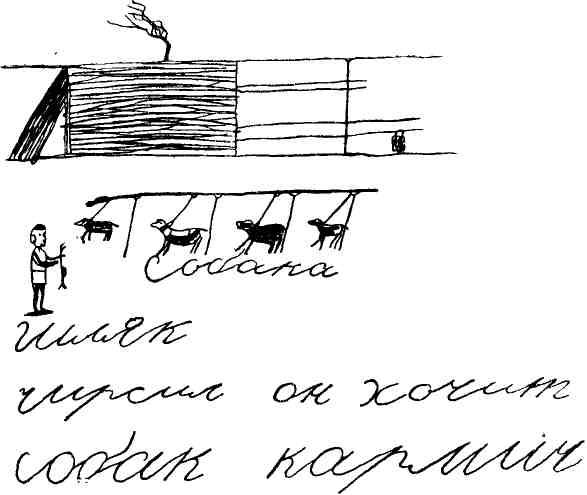 Собака
гиляк
чирсил он хочит
собак кармить